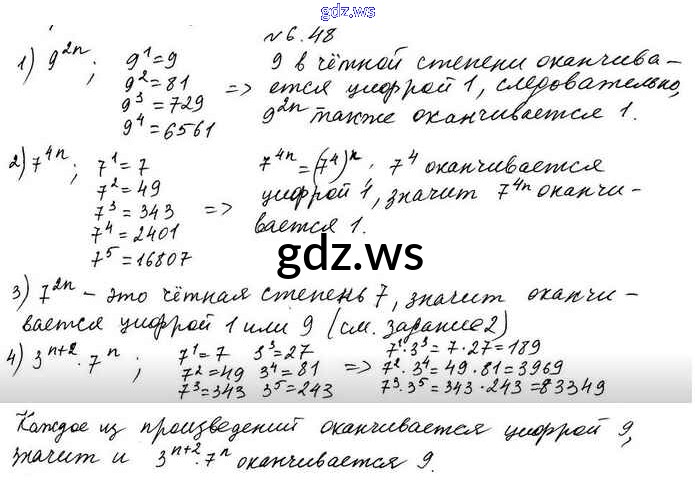 gdz.ws
№6.48
1) 9^{2n}; 9^1=9 9^2=81 9^3=729 9^4=6561 => 9 в чётной степени оканчива-
ется цифрой 1, следовательно,
9^{2n} также оканчивается 1.
2) 7^{4n}; 7^1=7 7^2=49 7^3=343 7^4=2401 7^5=16807 => 7^{4n}=(7^4)^n; 7^4 оканчивается
цифрой 1, значит 7^{4n} оканчи-
вается 1.
gdz.ws
3) 7^{2n} - это чётная степень 7, значит оканчи-
вается цифрой 1 или 9 (см. задание 2)
4) 3^{n+2}·7^n; 7^1=7 3^3=27 => 7^1·3^3=7·27=189
7^2=49 3^4=81 7^2·3^4=49·81=3969
7^3=343 3^5=243 7^3·3^5=343·243=83349
Каждое из произведений оканчивается цифрой 9,
значит и 3^{n+2}·7^n оканчивается 9.